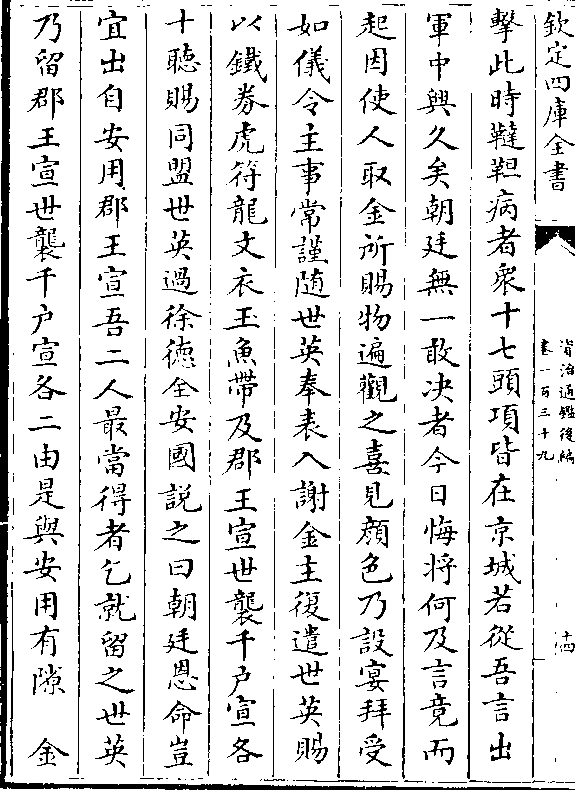 欽定四庫全書
資治通鑑後編
卷一百三十九
十四
擊此時韃靼病者衆十七頭項皆在京城若從吾言出
軍中興久矣朝廷無一敢决者今日悔將何及言竟而
起因使人取金所賜物遍觀之喜見顔色乃設宴拜受
如儀令主事常謹随世英奉表入謝金主復遣世英賜
以鐵劵虎符龍文衣玉魚帶及郡王宣世襲千户宣各
十聽賜同盟世英過徐德全安國説之曰朝廷恩命豈
宜出自安用郡王宣吾二人最當得者乞就留之世英
乃留郡王宣世襲千户宣各二由是與安用有隙　金